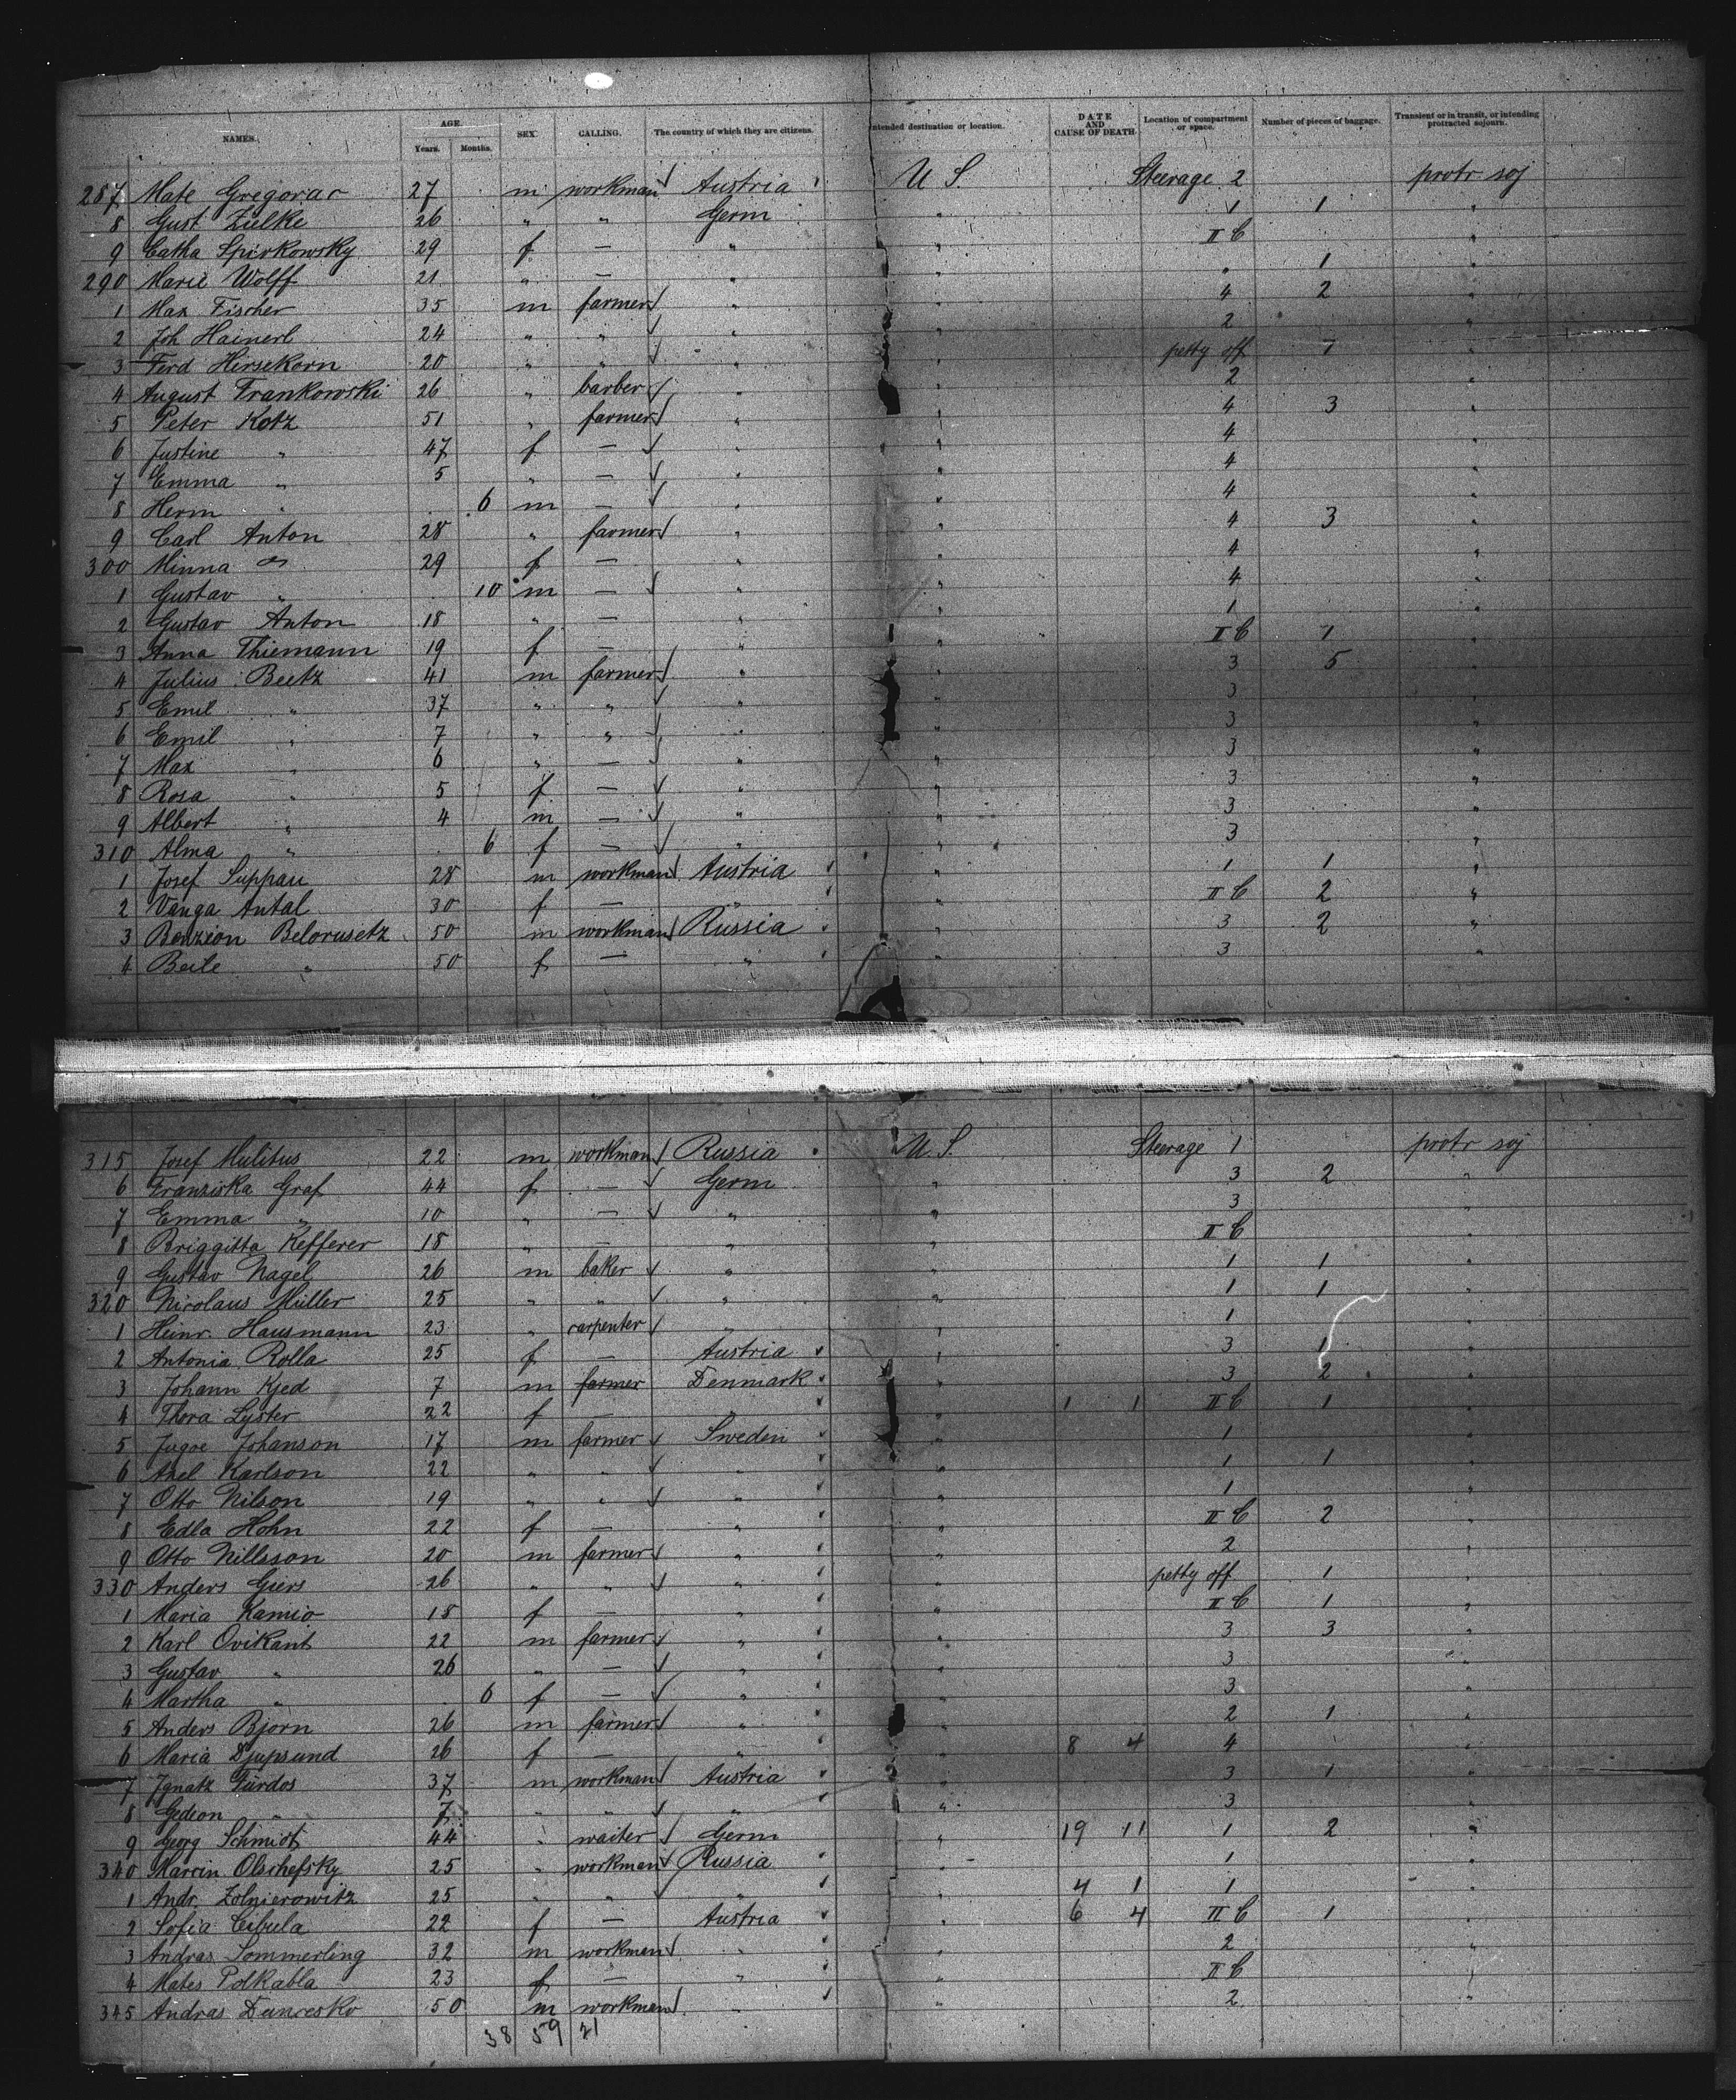 NAMES. AGE. Years. Months. SEX CALLING. The country of which they are citizens. Intended destination or location. DATE AND CAUSE OF DEATH. Location of compartment or space. Number of pieces of baggage. Transient or in transit, or intending protracted sojourn.
287 Mate Gregorac 27 m workman Austria U S. Steerage 2 protr soj
8 Gust Zielke 26 " " Germ " 1 1 "
9 Catha Spirkowsky 29 f — " " II C "
290 Marie Wolff 21 " — " " " 1 "
1 Max Fischer 35 m farmer " " 4 2 "
2 Joh Hainerl 24 " " " " 2 "
3 Ferd Hersekorn 20 " " " " petty off 1 "
4 August Frankowski 26 " barber " " 2 "
5 Peter Kotz 51 " farmer " " 4 3 "
6 Justine " 47 f — " " 4 "
7 Emma " 5 " — " " 4 "
8 Herm " 6 m — " " 4 "
9 Carl Anton 28 " farmer " " 4 3 "
300 Minna " 29 f — " " 4 "
1 Gustav " 10 m — " " 4 "
2 Gustav Anton 18 " — " " 1 "
3 Anna Thiemann 19 f — " " II C 1 "
4 Julius Beetz 41 m farmer " " 3 5 "
5 Emil " 37 " " " " 3 "
6 Emil " 7 " " " " 3 "
7 Max " 6 " — " " 3 "
8 Rosa " 5 f — " " 3 "
9 Albert " 4 m — " " 3 "
310 Alma " 6 f — " " 3 "
1 Josef Suppan 28 m workman Austria " 1 1 "
2 Vanga Antal 30 f — " " II C 2 "
3 Benzion Belorusetz 50 m workman Russia " 3 2 "
4 Beile " 50 f — " " 3 "
315 Josef Mulitus 22 m workman Russia U S. Steerage 1 protr soj
6 Franziska Graf 44 f — Germ " 3 2 "
7 Emma " 10 " — " " 3 "
8 Briggitta Kefferer 18 " — " " II C "
9 Gustav Nagel 26 m baker " " 1 1 "
320 Nicolaus Müller 25 " " " " 1 1 "
1 Heinr. Hausmann 23 " carpenter " " 1 "
2 Antonia Rolla 25 f — Austria " 3 1 "
3 Johann Kjed 7 m farmer Denmark " 3 2 "
4 Thora Lyster 22 f — " " 1 1 II C 1 "
5 Johanson 17 m farmer Sweden " 1 "
6 Axel Karlson 22 " " " " 1 1 "
7 Otto Nilson 19 " " " " 1 "
8 Edla Hohn 22 f — " " II C 2 "
9 Otto Nillsson 20 m farmer " " 2 "
330 Anders Giers 26 " " " " petty off 1 "
1 Maria Kamio 18 f — " " II C 1 "
2 Karl Ovikant 22 m farmer " " 3 3 "
3 Gustav " 26 " — " " 3 "
4 Martha " 6 f — " " 3 "
5 Anders Bjorn 26 m farmer " " 2 1 "
6 Maria Djupsund 26 f — " " 8 4 4 "
7 Ignatz Fürdos 37 m workman Austria " 3 1 "
8 Gedeon " 7 " " " " 3 "
9 Georg Schmidt 44 " waiter Germ " 19 11 1 2 "
340 Marcin Olschefsky 25 " workman Russia " 1 "
1 Andr. Zolnierowitz 25 " " " " 4 1 1 "
2 Sofia Cibula 22 f — Austria " 6 4 II C 1 "
3 Andras Sommerling 32 m workman " " 2 "
4 Mates Polkabla 23 f — " " II C "
345 Andras 50 m workman " " 2 "
38 59 21